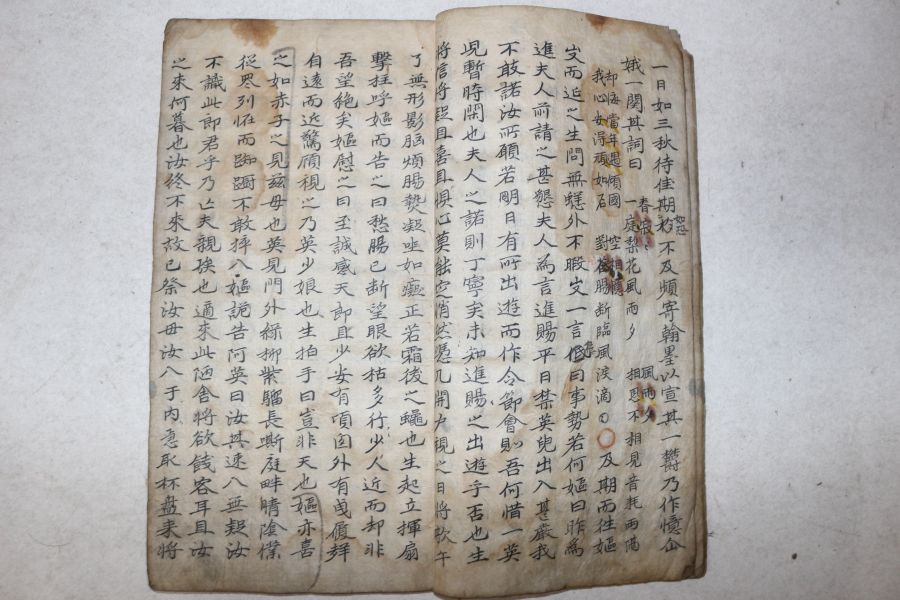 一日如三秋待佳期稔不及頻寄翰墨以宣其一欝乃作憶金
娥一関其詞曰 春寂寂 一庭梨花風雨夕 風雨夕 相思不相見音耗兩隔
却悔當年遇傾國 空相憶
我心安得頑如石 對花腸断臨風淚滴〇〇及期而往嫗
近之生問無恙外不暇一言但曰事勢若何嫗曰昨為
進夫人前請之甚懇夫人為言進賜平日禁英兒出入甚嚴我
不敢諾汝所願若明日有所出遊而作令節會則吾何惜一英
皃暫時閑也夫人之諾則丁寧矣未知進賜之出遊乎否也生
將信將疑且喜且惧心莫能定悄然憑几開户視之日將午
了無形影胸煩腸熱凝坐如癡正若霜後之蠅也生起立揮扇
擊柱呼嫗而告之曰愁腸已断望眼欲枯多行少人近而却非
吾望絶矣嫗慰之曰至誠感天即且少安有頃囱外有曳履聲
自遠而近驚顧視之乃英少娘也生拍手曰豈非天也嫗亦喜
之如赤子之見玆母也英見門外綠柳紫騮長嘶庭畔晴陰僕
從列怪而踟躅不敢入嫗詭告阿英曰汝其速入無疑汝
不識此郎君乎乃亡夫親族也適來此陋舍將欲餞客耳且汝
之來何暮也汝終不來故已祭汝母汝入于内意取杯盤来將